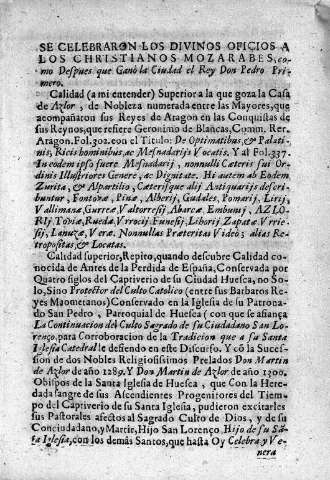 SE CELEBRARON LOS DIVINOS OFICIOS A
LOS CHRISTIANOS MOZARABES, co-
mo Despues que Ganò la Ciudad el Rey Don Pedro Pri-
mero.
Calidad (a mi entender) Superior a la que goza la Casa
de Azlor, de Nobleza numerada entre las Mayores, que
acompañaron sus Reyes de Aragon en las Conquistas de
sus Reynos, que refiere Geronimo de Blancas, Comm. Rer.
Aragon. Fol. 302. con el Titulo: De Optimatibus, & Palati-
nis, Ricis hominibus, ac Mesnadarijs Vocatis. Y al Fol. 337.
In eodem ipso fuere Mesnadarij, nonnulli Cæteris sus Or-
dinis Illustriores Genere, ac Dignitate. Hi autem ab Eodem
Zurita, & Alpartilio, Cæterisque alij Antiquarijs descri-
buntur, Fontovæ, Pinæ, Alberij, Gudales, Pomarij, Lirij,
Vallimanæ, Gurreæ, Valtorresij Abarcæ, Embunij, AZLO-
RIj, Tobiæ, Ruedæ, Vrrocij Funesij, Liborij, Zapatæ, Vrrie-
sij, Lanuzæ, Veræ. Nonnullas Præteritas Video; alias Re-
tropositas & Locatas.
Calidad superior, Repito, quando descubre Calidad co-
nocida de Antes de la Perdida de España, Conservada por
Quatro siglos del Captiverio de su Ciudad Huesca, no So-
lo, Sino Protector del Culto Catolico (entre sus Barbaros Re-
yes Maometanos) Conservado en la Iglesia de su Patrona-
do San Pedro, Parroquial de Huesca (con que se afiança
La Continuacion del Culto Sagrado de su Ciudadano San Lo-
renço, para Corroboracion de la Tradicion que a su Santa
Iglesia Catedral le desiendo en este Discurso. Y cō la Sucef-
sion de dos Nobles Religiosissimos Prelados Don Martin
de Azlor de año 1289. Y Don Martin de Azlor de año 1300.
Obispos de la Santa Iglesia de Huesca, que Con la Here-
dada sangre de sus Ascendientes Progenitores del Tiem-
po del Captiverio de su Santa Iglesia, pudieron excitarles
sus Pastorales afectos al Sagrado Culto de Dios, y de su
Conciudadano, y Martir, Hijo San Lorenço, Hijo de su Sā-
ta Iglesia, con los demàs Santos, que hasta Oy Celebra, y Ve-
nera